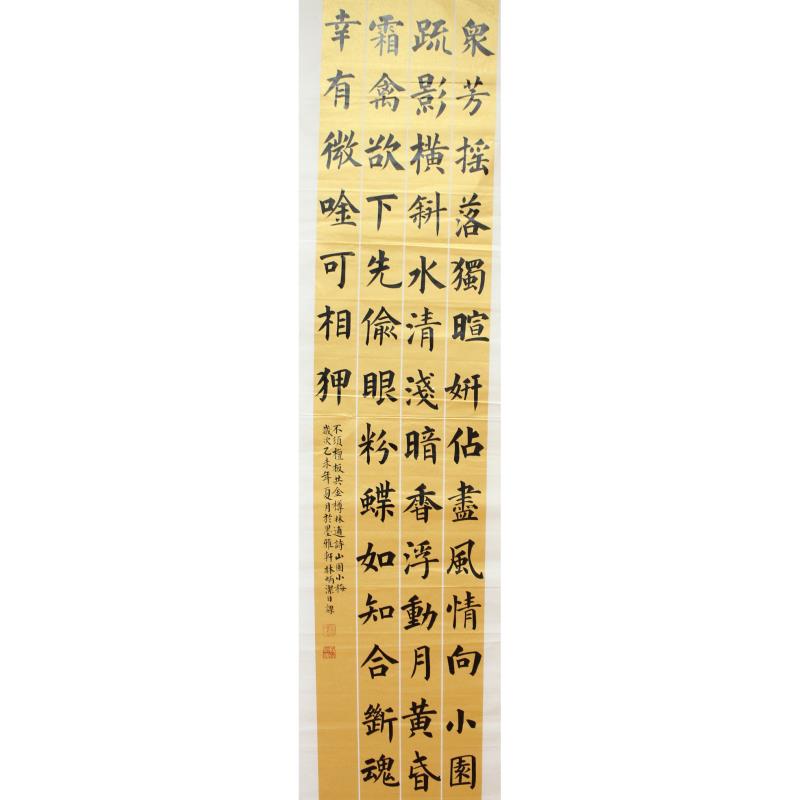 眾芳摇落獨暄妍佔盡風情向小園
疏影橫斜水清淺暗香浮動月黃昏
霜禽欲下先偷眼粉蝶如知合斷魂
幸有微唫可相狎
不須檀板共金樽林逋詩山園小梅
歲次乙未年夏月於墨雅軒林炳潔日課